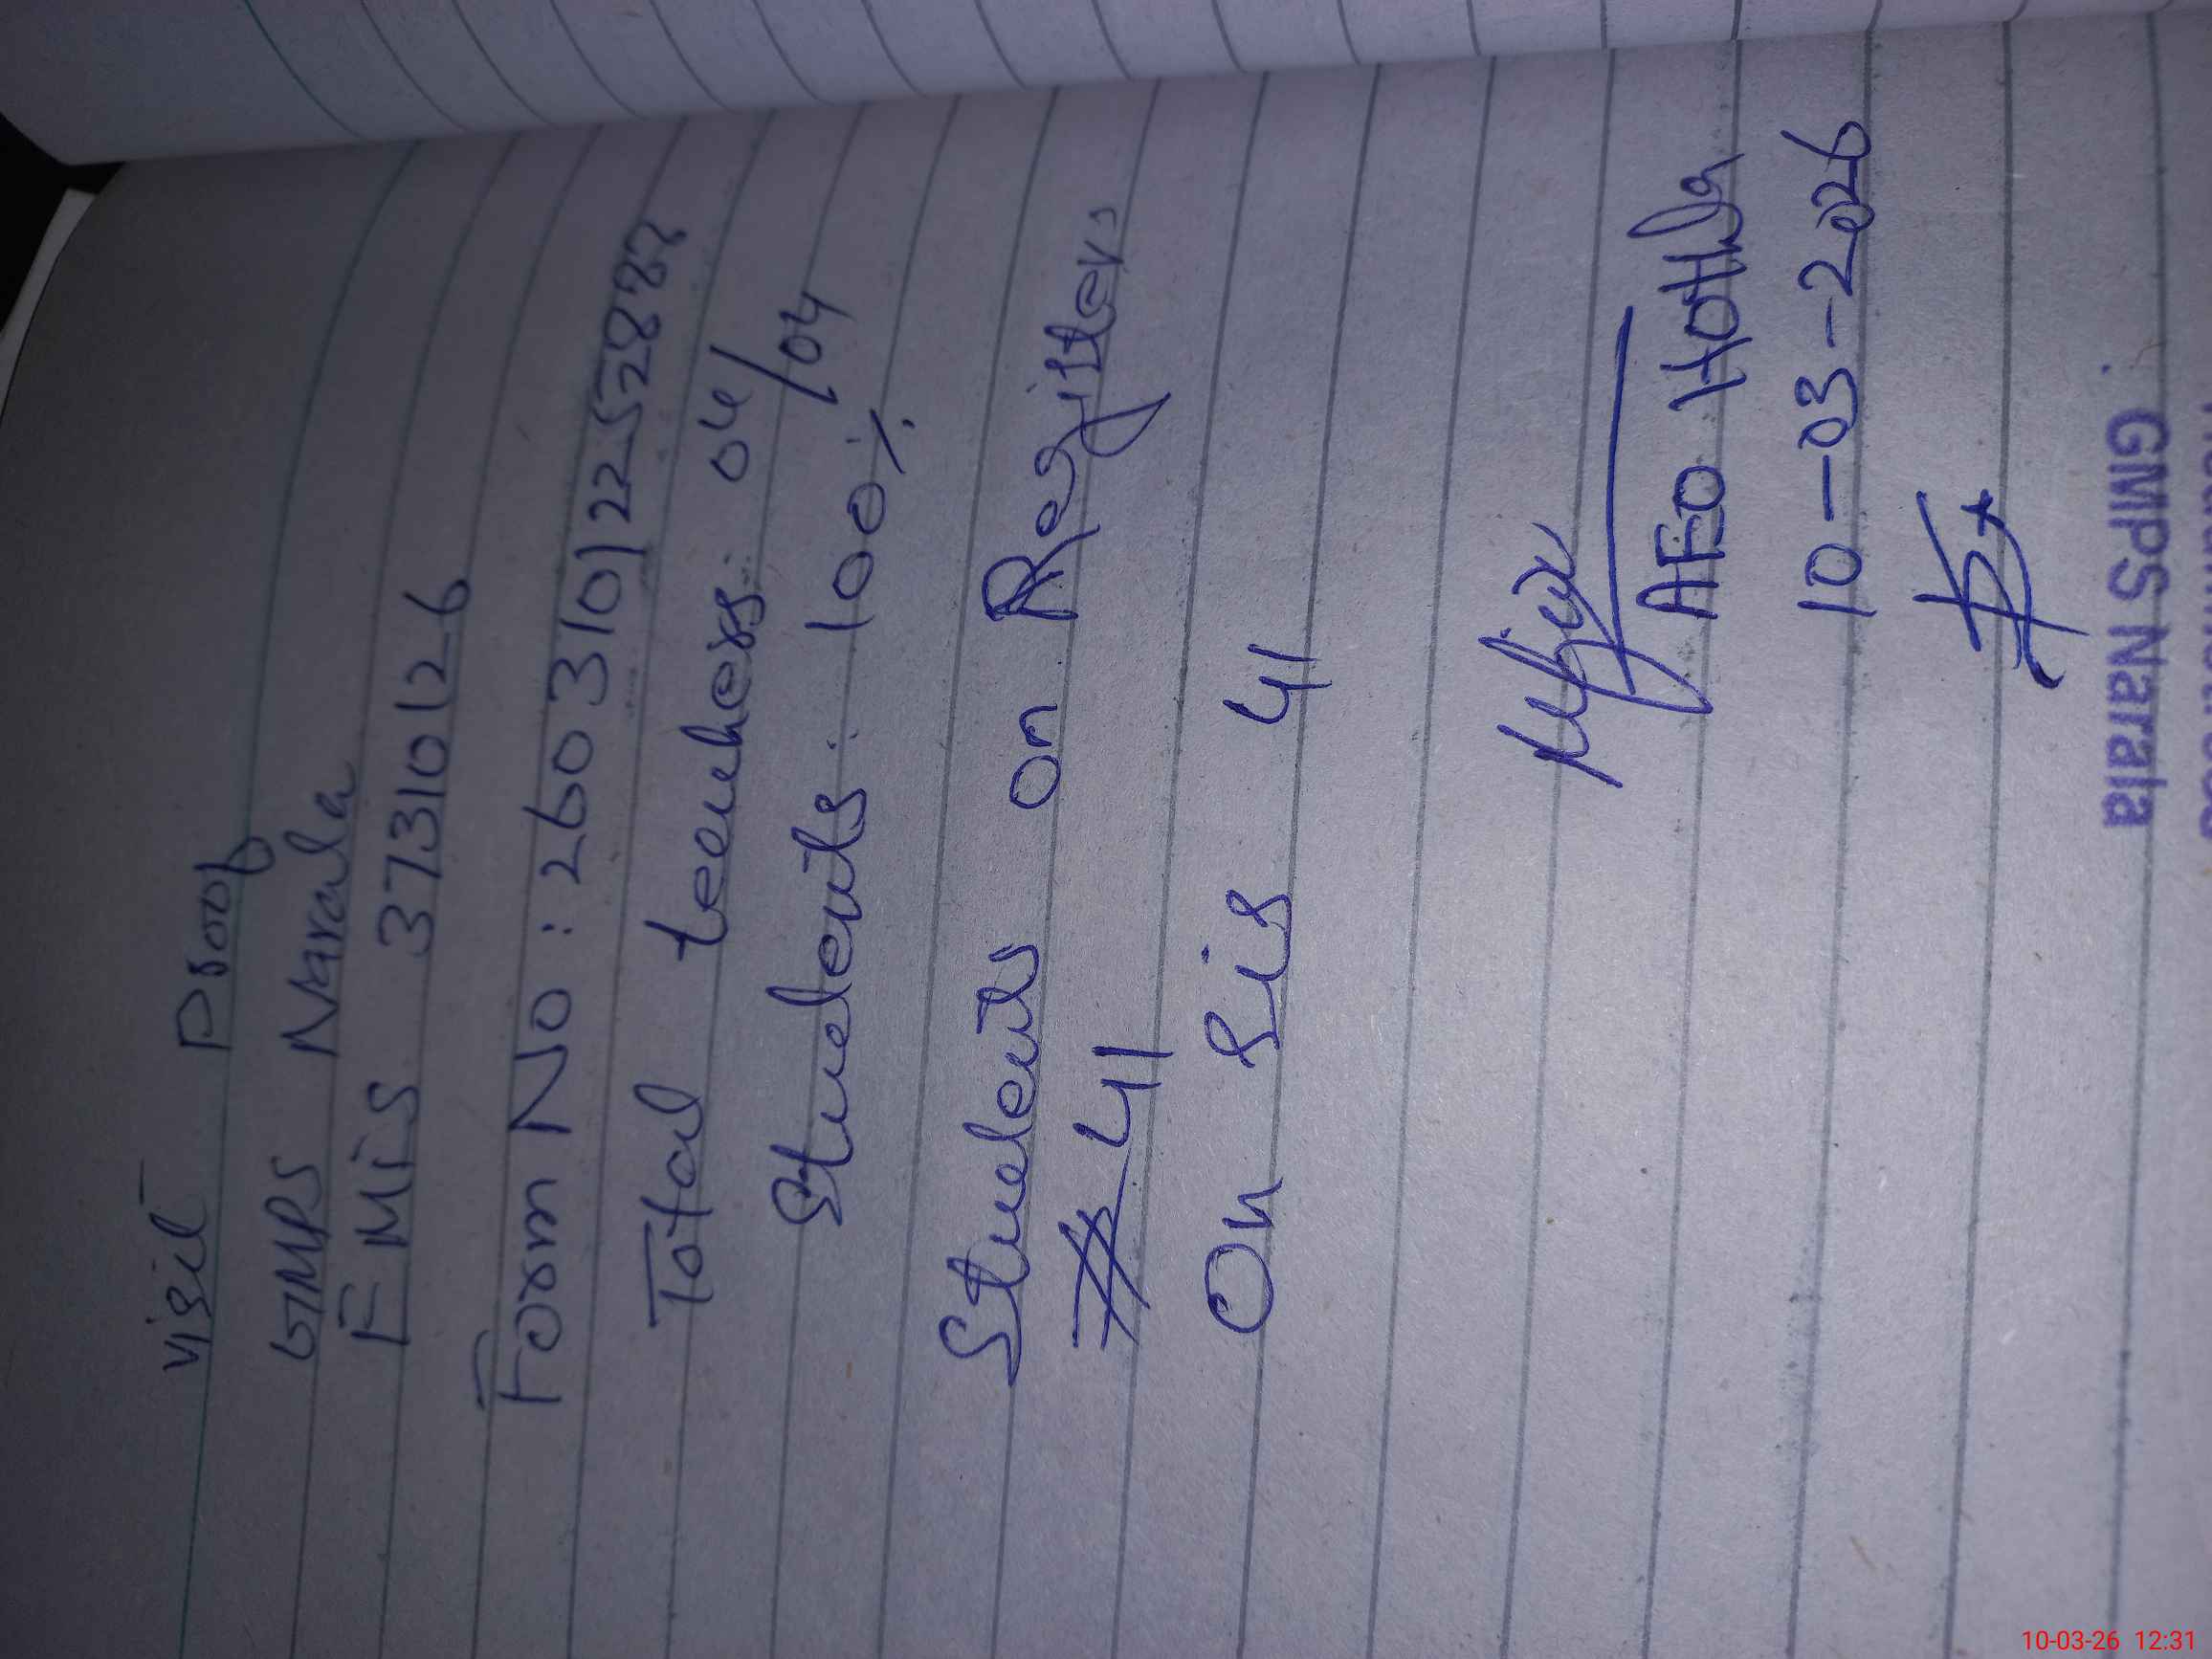 Visit Proof
GMPS Narala
EMIS 37310126
Form No: 2603101225288
Total teachers: 04/04
Students: 100%
Students on Registers
# 41
On Sis 41
AEO Hothla
10-03-2026
GMPS Narala
10-03-26 12:31